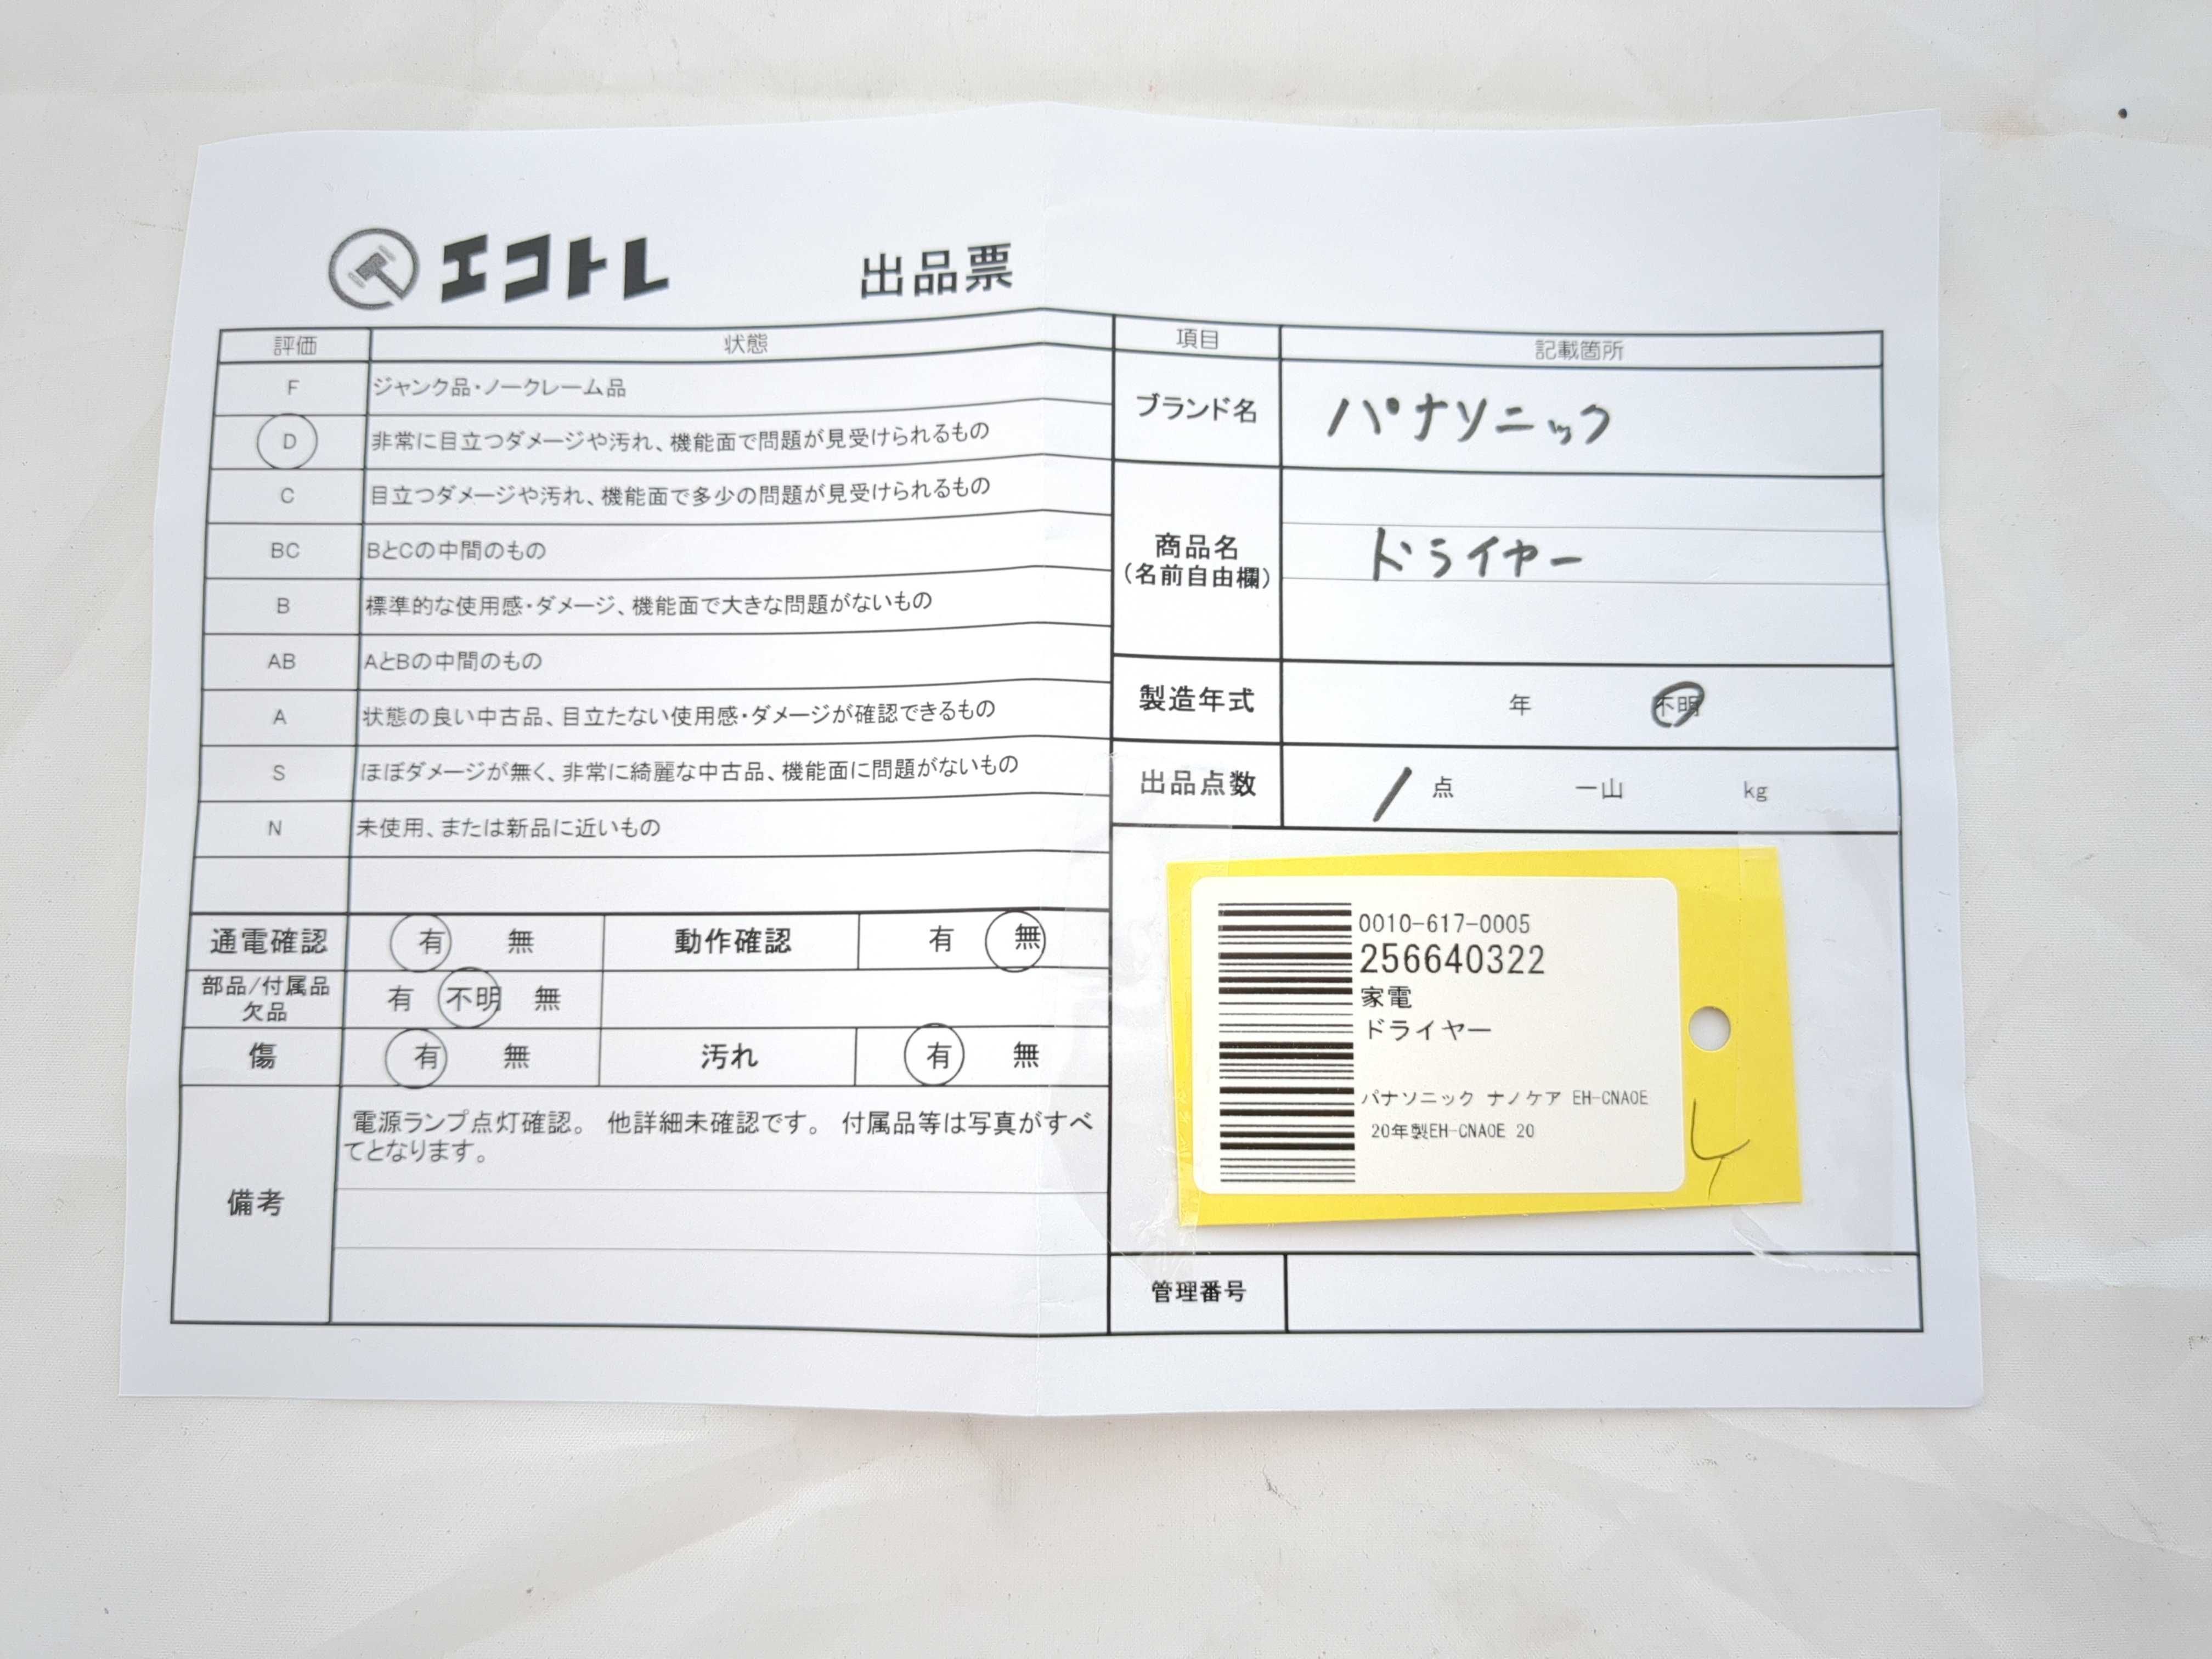 エコトレ 出品票
評価 状態
F ジャンク品・ノークレーム品
D 非常に目立つダメージや汚れ、機能面で問題が見受けられるもの
C 目立つダメージや汚れ、機能面で多少の問題が見受けられるもの
BC BとCの中間のもの
B 標準的な使用感・ダメージ、機能面で大きな問題がないもの
AB AとBの中間のもの
A 状態の良い中古品、目立たない使用感・ダメージが確認できるもの
S ほぼダメージが無く、非常に綺麗な中古品、機能面に問題がないもの
N 未使用、または新品に近いもの
通電確認 有 無 動作確認 有 無
部品/付属品
欠品
有 不明 無
傷 有 無 汚れ 有 無
備考
電源ランプ点灯確認。 他詳細未確認です。 付属品等は写真がすべ
てとなります。
項目 記載箇所
ブランド名 パナソニック
商品名
(名前自由欄)
ドライヤー
製造年式 年 不明
出品点数 1 点 一山 kg
0010-617-0005
256640322
家電
ドライヤー
パナソニック ナノケア EH-CNA0E
20年製EH-CNA0E 20
管理番号